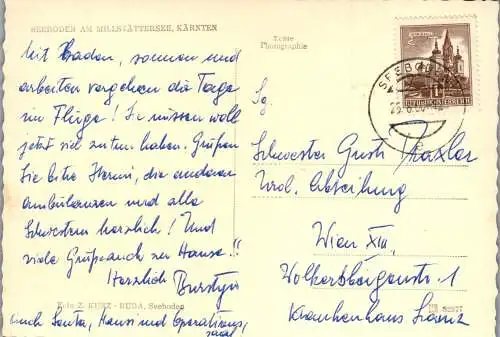 SEEBODEN AM MILLSTÄTTERSEE, KÄRNTEN
Mit Baden, sonnen und
arbeiten vergehen die Tage
im Fluge! Sie müssen wohl
jetzt viel zu tun haben. Grüßen
Sie bitte Hermi, die anderen
Ambulanzen und alle
Schwestern herzlich! Und
viele Grüße auch zu Hause!!
Herzlich
Foto Z. KURZ - BUDA, Seeboden
auch Santa, Hansi und Operations
saal
Echte
Photographie
SEEBODEN
REPUBLIK ÖSTERREICH
Sg.
Schwester Gusti Traxler
Urol. Abteilung
Wien XIII,
Wolkersbergenstr. 1
Krankenhaus Lainz